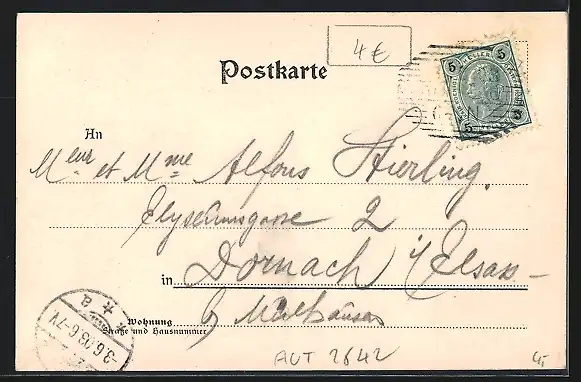 4€
Postkarte
5 HELLER 5
5 5
An
Meur et Mme Alfons Stierling.
Elyseumsgasse 2
in Dornach i/ Elsass
b/ Mülhausen
Wohnung
Straße und Hausnummer
* a
-3.6.03.6-7V
AUT 2642